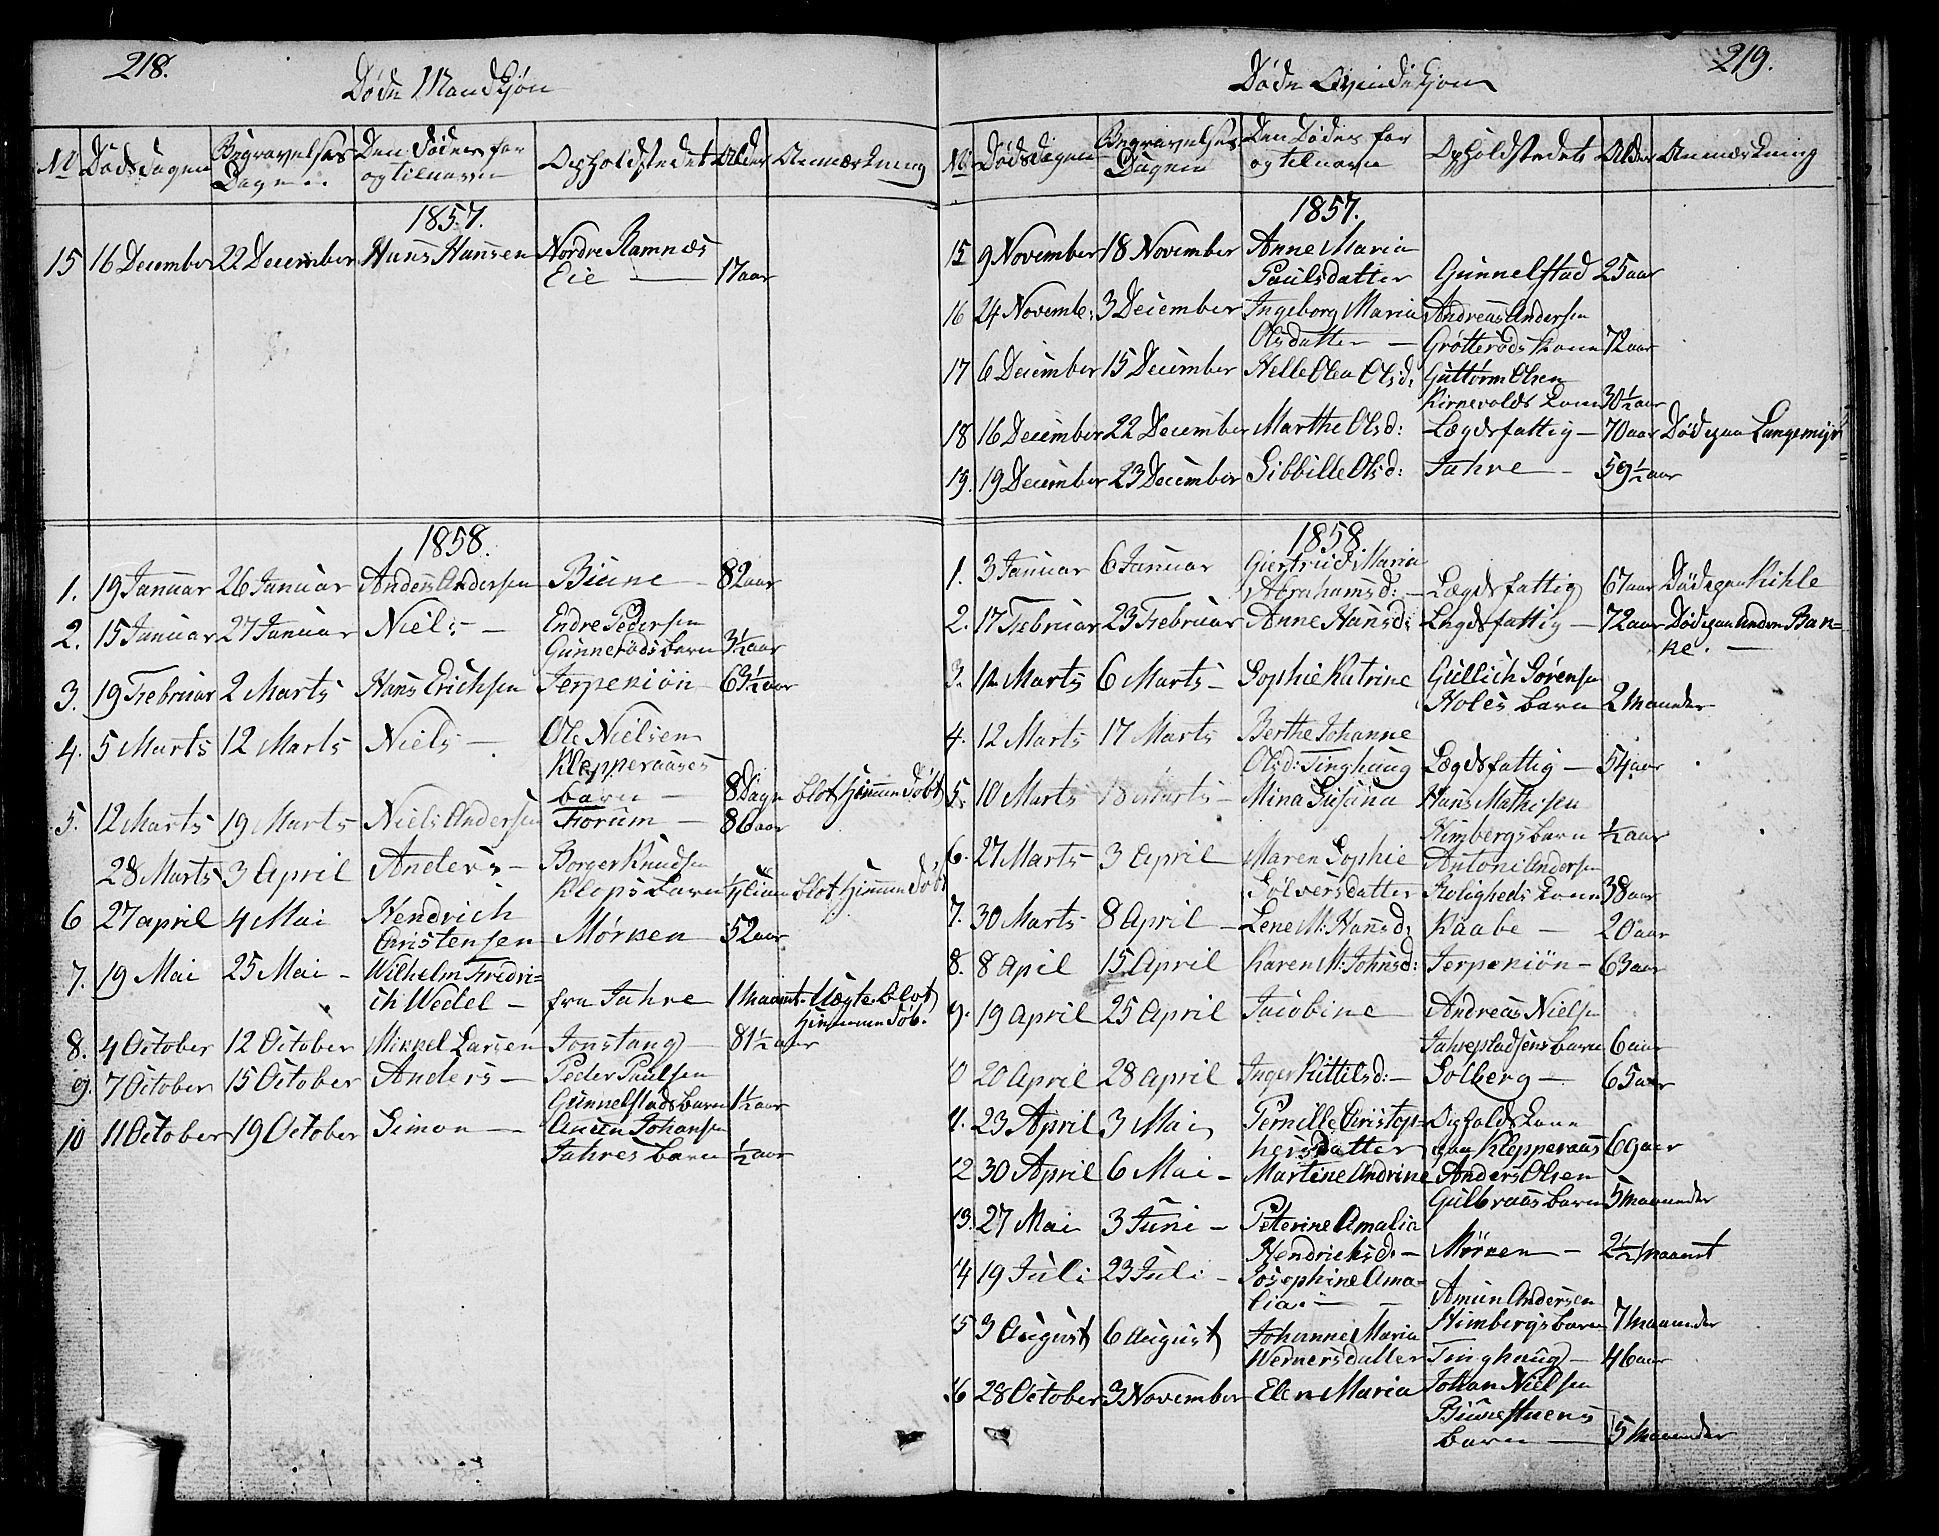 218.
Døde Mandkjøn
No Døds dagen Begravelses Dagen Den Dødes for og tilnavn Opholdstedet Alder Anmærkning
1857.
15 16 December 22 December Hans Hansen Nordre Ramnæs
Eie — 17 aar
1858.
1. 19 Januar 26 Januar Anders Andersen Biune — 82 aar
2. 15 Januar 27 Januar Niels — Endre Pedersen
Gunnerøds barn 3½ aar
3. 19 Februar 2 Marts Hans Erichsen Jerpekiøn 63½ aar
4. 5 Marts 12 Marts Niels — Ole Nielsen
Klepperaases
barn — 8 Dage blot Hjemme Døbt
5. 12 Marts 19 Marts Niels Andersen Forum — 86 aar
28 Marts 3 April Anders — Borger Knudsen
Klops barn blot Hjemme Døbt
6 27 april 4 Mai Hendrich
Christensen Mørken 52 aar
7. 19 Mai 25 Mai — Wilhelm Fredri=
ich Wedel — fra Jahre 1 maant. Uægte blot
Hjemme Døb.
8. 4 October 12 October Mikkel Larsen Jonstang — 81½ aar
9. 7 October 15 October Anders — Peder Paulsen
Gunnelstads barn 1½ aar
10 11 October 19 October Simon — Amun Johansen
Jahres barn ½ aar
219.
Døde Qvindekjøn
No Døds dagen Begravelses Dagen Den Dødes for og tilnavn Opholdstedets Alder Anmærkning
1857.
15 9 November 18 November Anne Maria
Paulsdatter Gunnelstad 25 aar
16 24 Novemb: 3 December Ingeborg Maria Andreas Andersen
Olsdatter — Grøtterøds kone 72 aar
17 6 December 15 December Helle Olea Olsd: Guttorm Olsen
Kirnevolds kone 30½ aar
18 16 December 22 December Marthe Olsd: Lægdsfattig — 70 aar Død paa Langemyr
19. 19 December 23 December Sibbille Olsd: Jahre — 59½ aar
1858
1. 3 Januar 6 Januar Giertrud Maria
Abrahamsd: — Lægdsfattig 67 aar Død paa Kihle
2. 17 Februar 23 Februar Anne Hansd: Lægdsfattig — 72 aar Død paa Andre Ban=
ke. —
3. Marts 6 Marts — Sophie Katrine Gullich Sørensen
Holes barn 2 maaneder
4. 12 Marts 17 Marts Berthe Johanne
Olsd: Tinghaug Lægdsfattig — 54 aar
5. 10 Marts 18 Marts — Mina Susana Hans Mathisen
Himbergs barn ½ aar
6. 27 Marts 3 April — Maren Sophie Antoni Andersen
Sølversdatter Roligheds kone 38 aar
7. 30 Marts 8 April — Lene M: Hansd: Raabe — 20 aar
8. 8 Apil 15 April Karen M: Johnsd: Jerpekiön — 63 aar
9. 19 April 25 April Jacobine Andreas Nielsen
Jahrestadsens barn 6 aar
10 20 April 28 april Inger Kittilsd: — Solberg — 65 aar
11. 23 April 3 Mai Pernille Christop= Opholds kone
hersdatter paa Klepperaas 69 aar
12 30 April 6 Mai — Martine Andrine Anders Olsen
Gulbraas barn 5 maaneder
13. 27 Mai 3 Juni — Peterine Amalia
Hendrichsd: — Mørken — 2½ Maanet
14 19 Juli 23 Juli — Josephine Ama=
lia. — Amun Andersen
Himbergs barn 7 maaneder
15 3 August 6 August Johanne Maria
Wernersdatter Tinghaug — 46 aar
16 28 October 3 November Elen Maria Johan Nielsen
Biunestuens
barn — 5 Maaneder